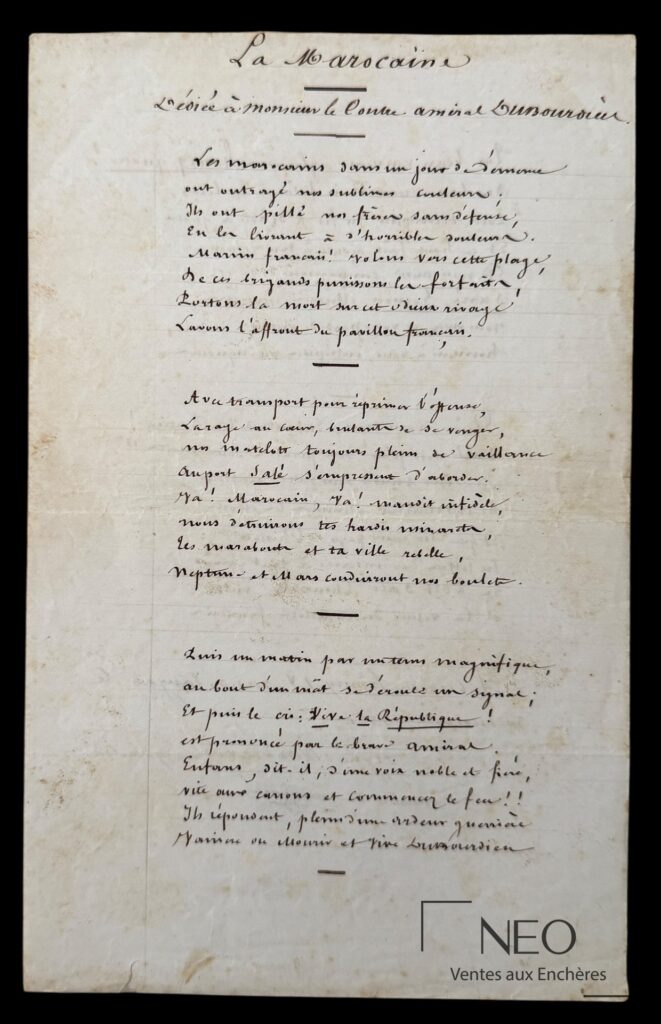 La Marocaine
Dédiée à Monsieur le Contre amiral Dubourdieu.
Les marocains dans un jour de démence
ont outragé nos sublimes couleurs;
Ils ont pillé nos frères sans défense,
En les livrant à d'horribles douleurs.
Marins français! Volons vers cette plage,
De ces brigands punissons les forfaits,
Portons la mort sur cet odieux rivage
Lavons l'affront du pavillon français.
Avec transport pour réprimer l'offense,
La rage au cœur, brulants de se venger,
nos matelots toujours plein de vaillance
au port Salé s'empressent d'aborder.
Va! Marocain, Va! maudit infidèle,
nous détruirons tes hardis minarets,
Tes marabouts et ta ville rebelle,
Neptune et Mars conduiront nos boulets.
Puis un matin par un tems magnifique,
au bout d'un mât se déroule un signal;
Et puis le cri: Vive la République!
est prononcé par le brave amiral.
Enfans, dit-il, d'une voix noble et fière,
vite aux canons et commencez le feu!!
Ils répondent, plein d'une ardeur guerrière
Vaincre ou Mourir et Vive Dubourdieu
NEO
Ventes aux Enchères